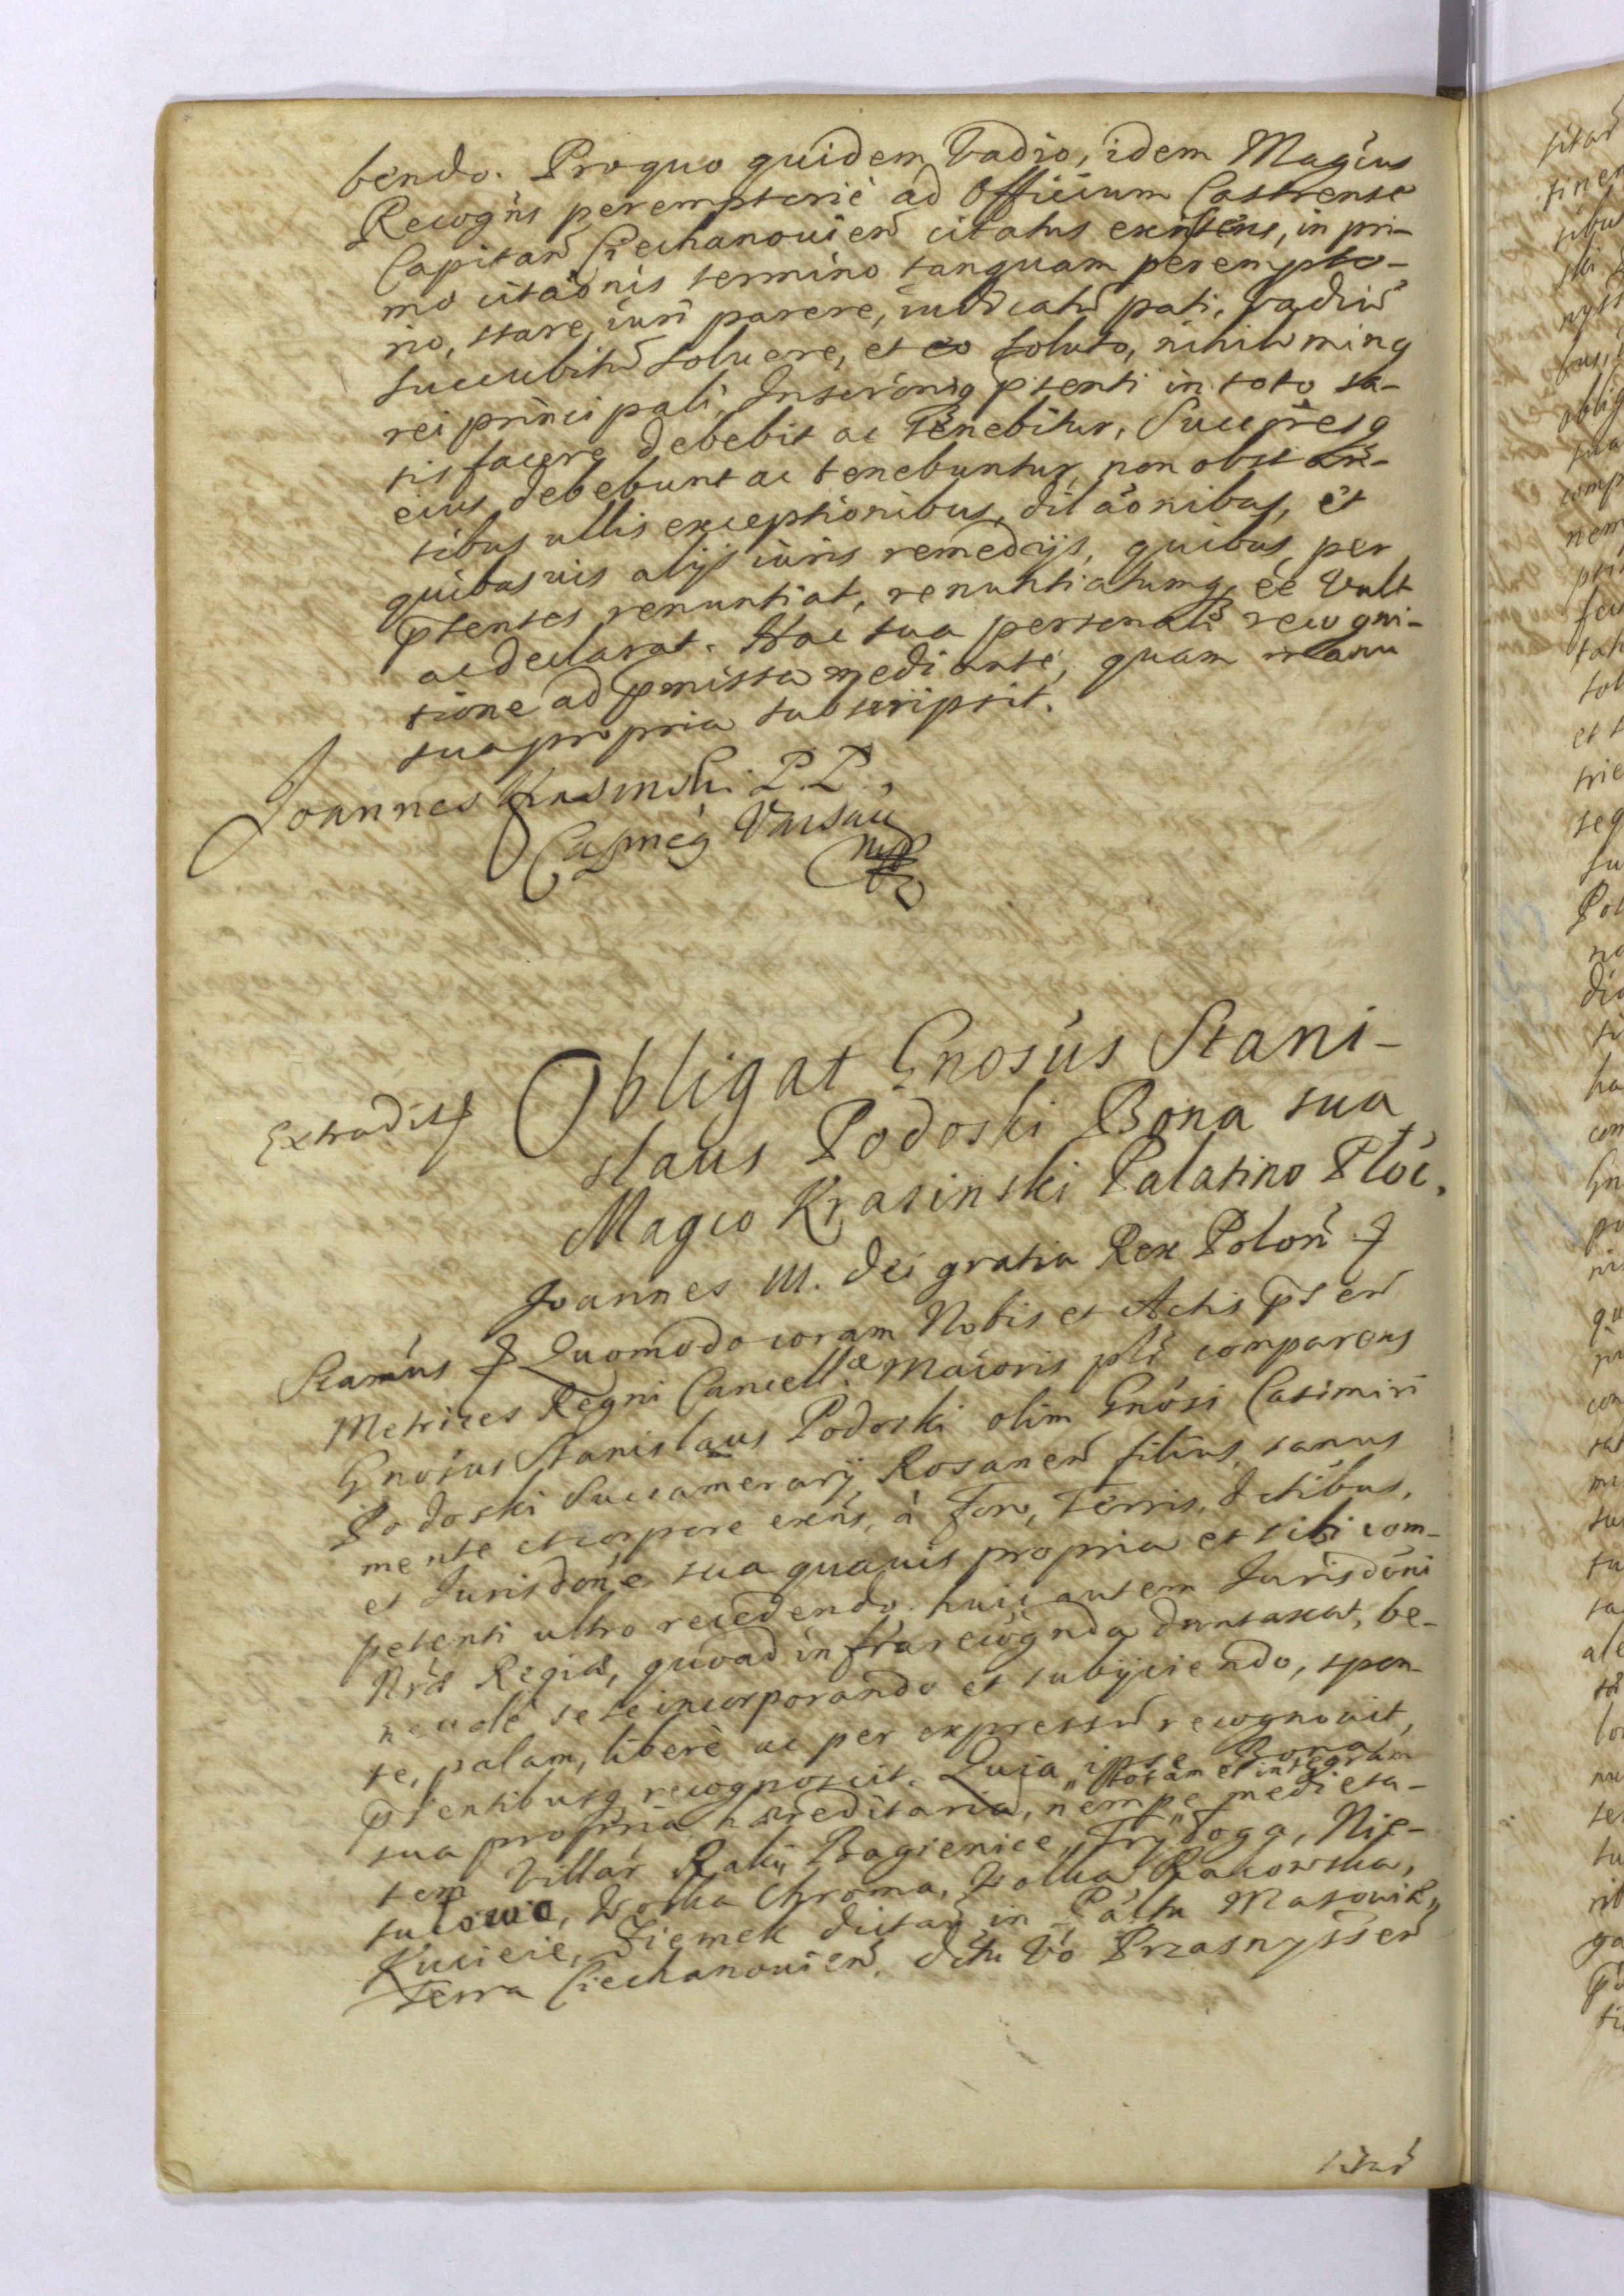 bendo. Pro quo quidem Vadio, idem Magcus
Recogns peremptorie ad Officium Castrense
Capitan Ciechanouien citatus existens, in pri-
mo citaonis termino tanquam perempto-
rio, stare, iuri parere, iudicatu pati, vadiu
succubitu soluere, et eo soluto, nihilo minq
rei principali, Inscrioniq pnti in toto sa-
tisfacere debebit ac tenebitur, Succresq
eius debebunt ac tenebuntur, non obstan-
tibus ullis exceptionibus, dilaonibus, et
quibusuis alijs iuris remedijs, quibus per
pntes renuntiat, renuntiatumq ee vult
ac declarat. Hac sua personali recogni-
tione ad pmissa mediante, quam manu
sua propria subscripsit.
Joannes Krasinski P. P.,
Varsau
mp
Extradit
Obligat Gnosus Stani-
slaus Podoski Bona sua
Magco Krasinski Palatino Ploc.
Joannes III. Dei gratia Rex Polon
Quomodo coram Nobis et Actis psen
Metrices Regni Cancellæ Maioris plr comparens
Gnosus Stanislaus Podoski olim Gnosi Casimiri
Podoski Succamerarij Rosanen filius, sanus
mente et corpore exns, à Foro, Terris, dctibus,
et Jurisdone sua quauis propria et sibi com-
petenti ultro recedendo, huic autem Jurisdoni
Nræ Regiæ, quoad infra recognda duntaxat, be-
neuole sese incorporando et subijciendo, spon-
te, palam, libere ac per expressu recognouit,
psentibusq recognoscit. Quia ipse Bona
sua propria hæreditaria, nempe „ totam et integram „ medieta-
tem Villar Raki, Bagienice, Frydoga, Nie-
sulowo, Wolka Chroma, Wolka Rakowska,
Kucieie, Ziemek dictar in Paltu Masouiæ,
Terra Ciechanouien, dctu vo Przasnyssen